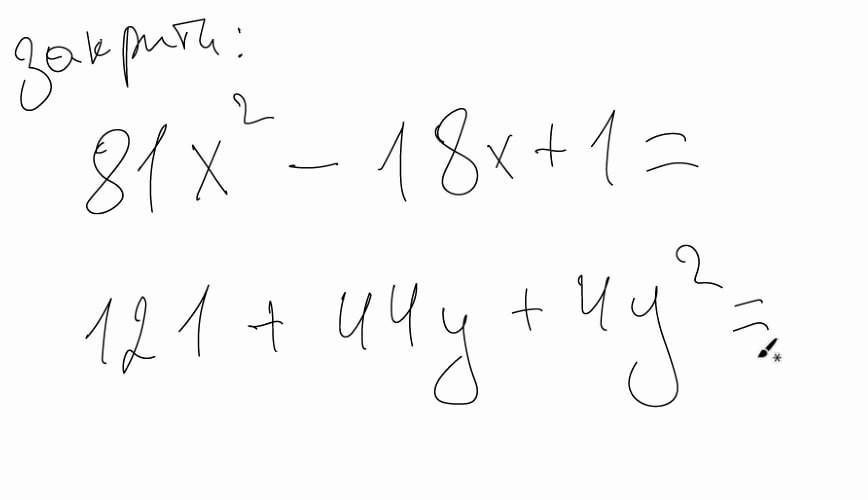 закрыть:
81x² - 18x + 1 =
121 + 44y + 4y² =